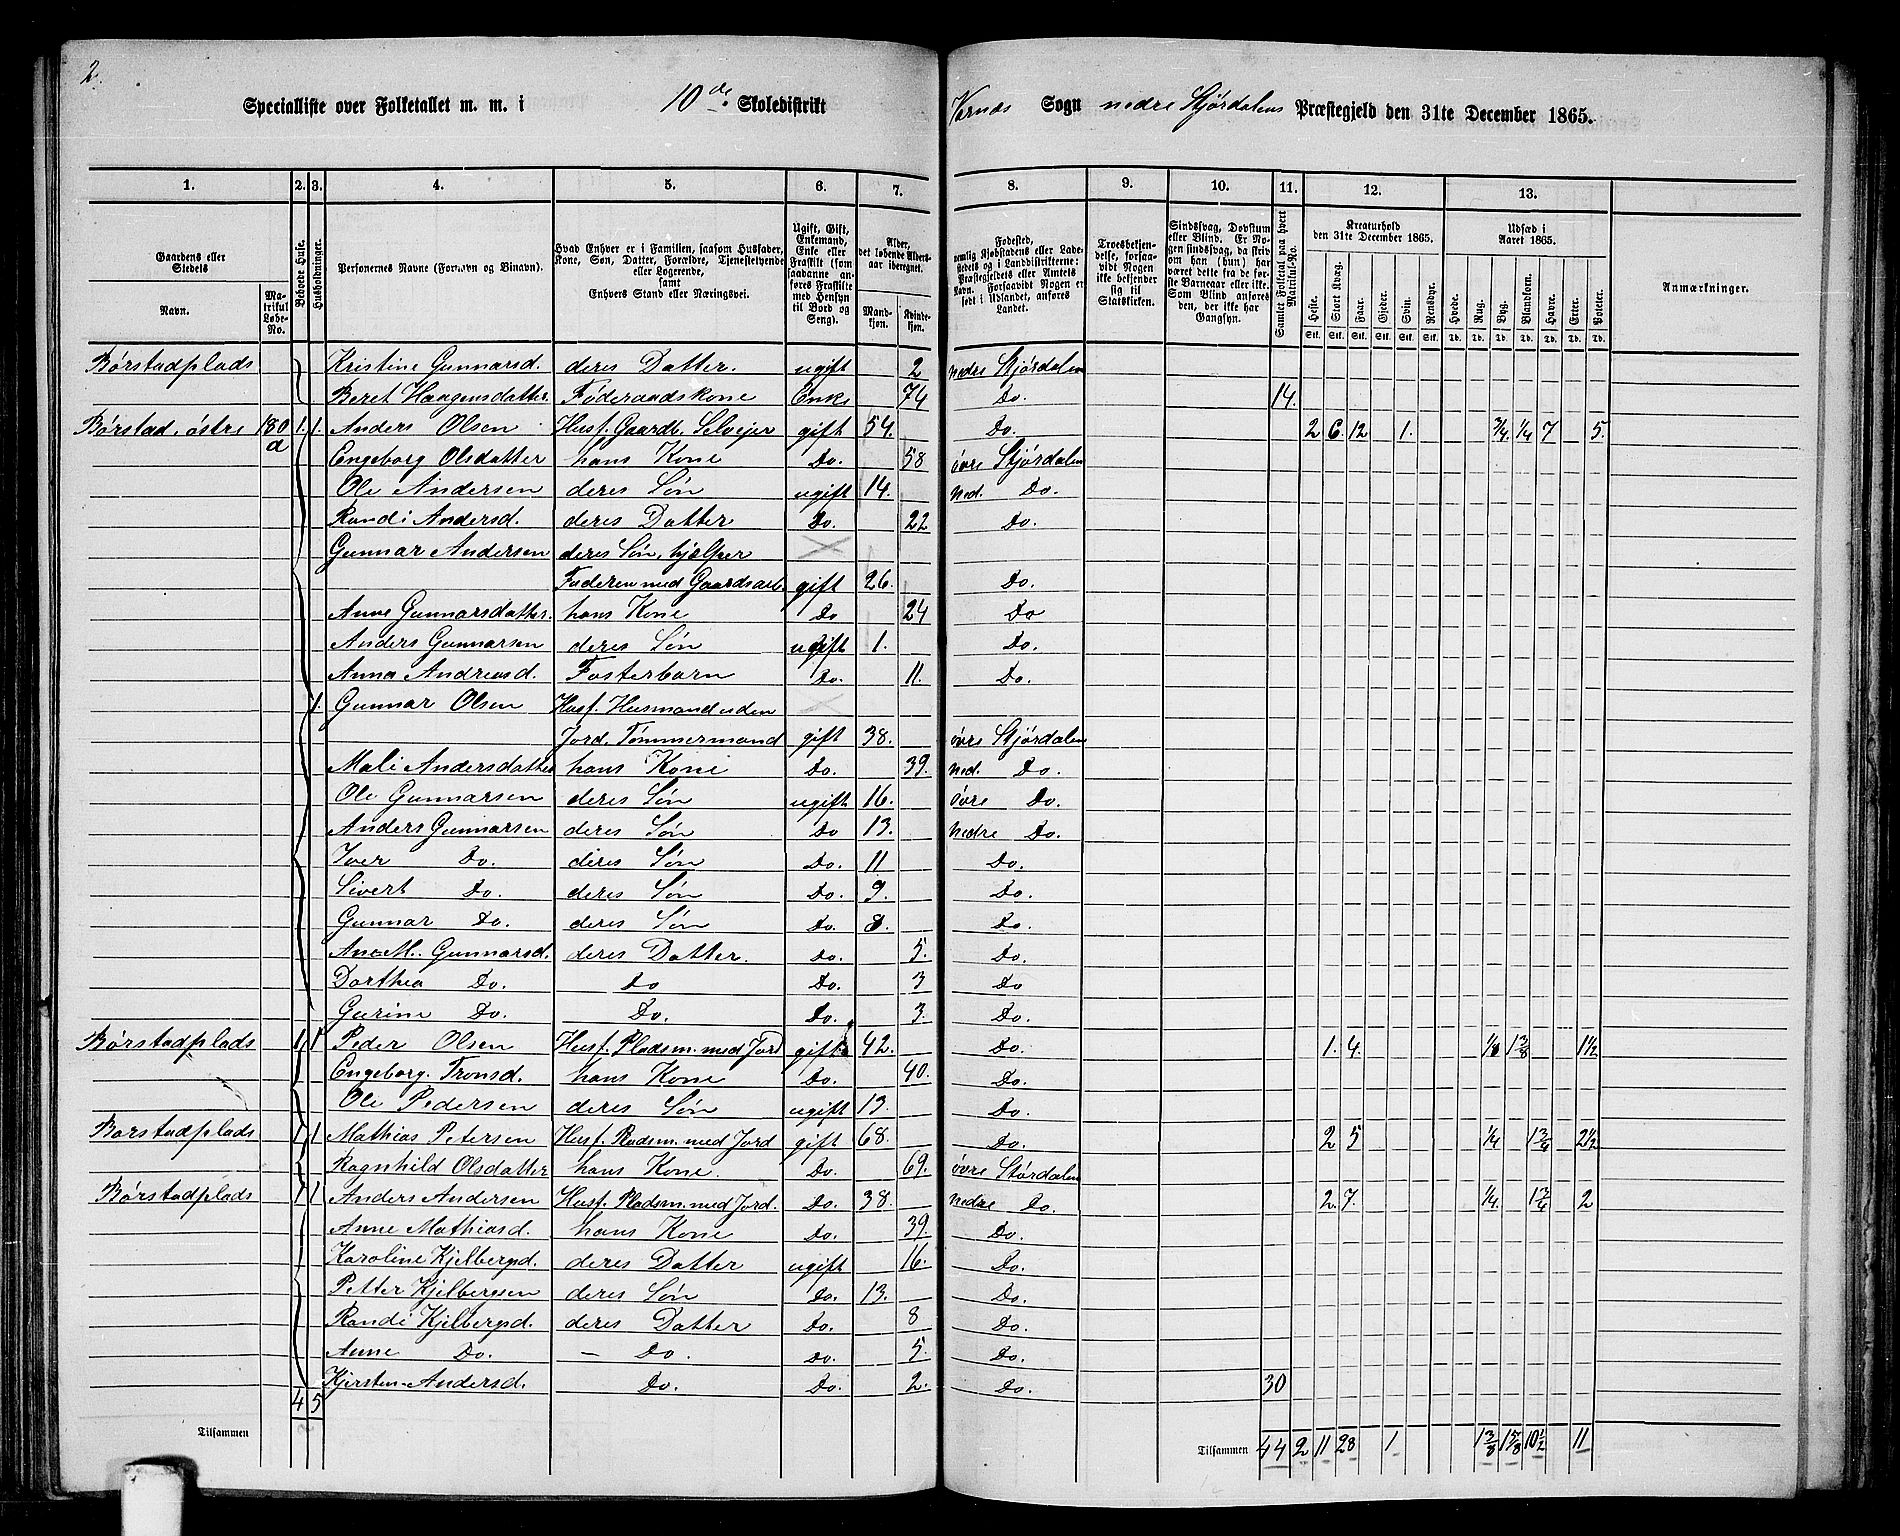 2.
Specialliste over Folketallet m. m. i 10de Skoledistrikt Værnes Sogn nedre Stjørdalens Præstegjeld den 31te December 1865.
1. 2. 3. 4. 5. 6. 7. 8. 9. 10. 11. 12. 13.
Gaardens eller Stedets
Navn. Matrikul Løbe-No.
Beboede Huse.
Husholdninger.
Personernes Navne (Fornavn og Binavn).
Hvad Enhver er i Familien, saasom Husfader, Kone, Søn, Datter, Forældre, Tjenestetyende eller Logerende, samt Enhvers Stand eller Næringsvei.
Ugift, Gift, Enkemand, Enke eller Fraskilt (som saadanne anføres Fraskilte med Hensyn til Bord og Seng).
Alder, det løbende Aldersaar iberegnet.
Mandkjøn. Kvindekjøn.
Fødested, nemlig Kjøbstadens eller Ladestedets og i Landdistrikterne: Præstegjeldets eller Amtets Navn. Forsaavidt Nogen er født i Udlandet, anføres Landet.
Troesbekjendelse, forsaavidt Nogen ikke bekjender sig til Statskirken.
Sindssvag, Døvstum eller Blind. Er Nogen sindssvag, da skrives om han (hun) har været dette fra de første Barneaar eller ikke. Som Blind anføres den, der ikke har Gangsyn.
Samlet Folketal paa hvert Matrikul-No.
Kreaturhold den 31te December 1865.
Heste. Stort Kvæg. Faar. Gjeder. Svin. Rensdyr.
Udsæd i Aaret 1865.
Hvede. Rug. Byg. Blandkorn. Havre. Erter. Poteter.
Anmærkninger.
Stk. Stk. Stk. Stk. Stk. Stk. Td. Td. Td. Td. Td. Td. Td.
Børstadplads Kristine Gunnarsd. deres Datter. ugift 2 nedre Stjørdalen
Beret Haagensdatter Føderaadskone Enke 74 Do. 14.
Børstad, østre 180a 1. 1. Anders Olsen Husf. Gaardb. Selveier gift 54. Do. 2 6. 12 1. 3/4. 1/4 7 5.
Engeborg Olsdatter hans Kone Do. 58 øvre Stjørdalen
Ole Andersen deres Søn ugift 14. Ned. Do.
Randi Andersd. deres Datter Do. 22 Do.
Gunnar Andersen deres Søn, hjælper
Faderen med Gaardsarb. gift 26. Do.
Anne Gunnarsdatter. hans Kone Do 24 Do
Anders Gunnarsen deres Søn ugift 1. Do.
Anna Andreasd. Fosterbarn Do. 11. Do.
1. Gunnar Olsen Husf. Husmand uden
Jord. Tømmermand gift 38. øvre Stjørdalen
Mali Andersdatter hans Kone Do. 39. Ned. Do.
Ole Gunnarsen deres Søn ugift 16. øvre Do.
Anders Gunnarsen deres Søn Do 13. Nedre Do.
Iver Do. deres Søn Do. 11 Do.
Sivert Do. deres Søn Do. 9. Do.
Gunnar Do. deres Søn Do. 8. Do.
Gunnarsd. deres Datter. Do. 5. Do.
Dorthea Do. Do Do. 3 Do
Gurine Do. Do. Do. 3. Do.
Børstadplads 1 1 Peder Olsen Husf. Pladsm. med Jord gift 42. Do. 1. 4. 1/8 1 3/8 1 1/2
Engeborg. Tronsd. hans Kone Do. 40. Do.
Ole Pedersen deres Søn ugift 13. Do.
Børstadplads 1 1 Mathias Petersen Husf. Pladsm. med Jord gift 68. Do. 2 5 1/4 1 3/4 2 1/2
Ragnhild Olsdatter hans Kone. Do. 69. øvre Størdalen
Børstadplads 1 1 Anders Andersen Husf. Pladsm. med Jord. Do. 38. Nedre Do. 2. 7. 1/4. 1 3/4 2
Anne Mathiasd. hans Kone Do. 39. Do.
Karoline Kjelbergsd. deres Datter ugift 16. Do.
Petter Kjelbergsen deres Søn Do. 13. Do.
Randi Kjelbergsd. deres Datter Do. 8 Do.
Anne Do. — Do. Do. 5. Do.
Kjersten Andersd. Do. Do. 2. Do. 30
4 5
Tilsammen Tilsammen 44 2 11 28 1 1 3/8 1 5/8 10 1/2 11